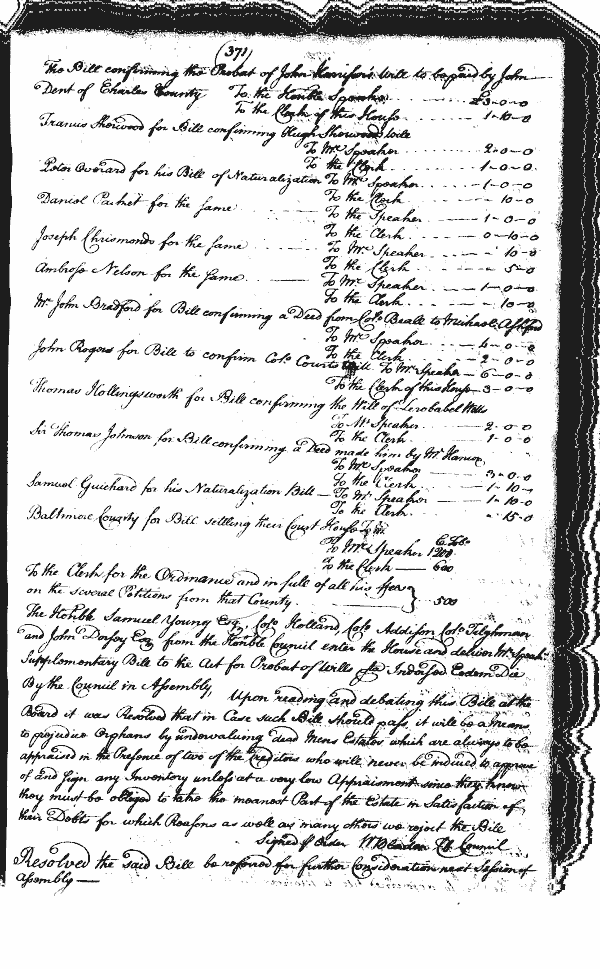 (371)
The Bill confirming the Probat of John Harrison's Will to be paid by John
Dent of Charles County To the Honble Speaker £3-0-0
To the Clerk of this House 1-10-0
Francis Sherwood for Bill confirming Hugh Sherwoods Will
To Mr Speaker 2-0-0
To the Clerk 1-0-0
Peter Overard for his Bill of Naturalization To Mr Speaker 1-0-0
To the Clerk 10-0
Daniel Pachet for the same To the Speaker 1-0-0
To the Clerk 0-10-0
Joseph Chrismondo for the same To Mr Speaker 10-0
To the Clerk 5-0
Ambrose Nelson for the same To Mr Speaker 1-0-0
To the Clerk 10-0
Mr John Bradford for Bill confirming a Deed from Colo Beall to Michael Ashford
To Mr Speaker 4-0-0
To the Clerk 2-0-0
John Rogers for Bill to confirm Colo Courts Will To Mr Speaker 6-0-0
To the Clerk of this House 3-0-0
Thomas Hollingsworth for Bill confirming the Will of Zerobabel Wells
To Mr Speaker 2-0-0
To the Clerk 1-0-0
Sir Thomas Johnson for Bill confirming a Deed made him by Mr
To Mr Speaker 3-0-0
To the Clerk 1-10-
Samuel Guichard for his Naturalization Bill To Mr Speaker 1-10-0
To the Clerk -15-0
Baltimore County for Bill settling their Court House
To Mr Speaker 1200
To the Clerk 600
To the Clerk for the Ordinance and in full of all his Fees
on the several Petitions from that County } 500
The Honble Samuel Young Esq, Colo Holland, Colo Addison Colo Tilghman
and John Dorsey Esq from the Honble Council enter the House and deliver Mr Speakr
Supplementary Bill to the Act for Probat of Wills &c Indorsed Eodem Die
By the Council in Assembly, Upon reading and debating this Bill at the
Board it was Resolved that in Case such Bill should pass it will be a means
to prejudice Orphans by undervaluing dead Mens Estates which are always to be
appraised in the Presence of two of the Creditors who will never be induced to approve
of and sign any Inventory unless at a very low Appraisment since they know
they must be obliged to take the meanest Part of the Estate in Satisfaction of
their Debts for which Reasons as well as many others we reject the Bill
Signed p Order W Bladen Cl Council
Resolved the said Bill be referred for further Consideration next Session of
Assembly